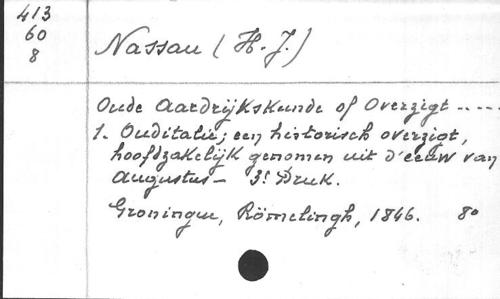 413
60
8
Nassau (H. J.)
Oude Aardrijkskunde of Overzigt .....
1. Ouditalie; een historisch overzigt,
hoofdzakelijk genomen uit d'eeuw van
Augustus – 3e Druk.
Groningen, Römelingh, 1846. 8o